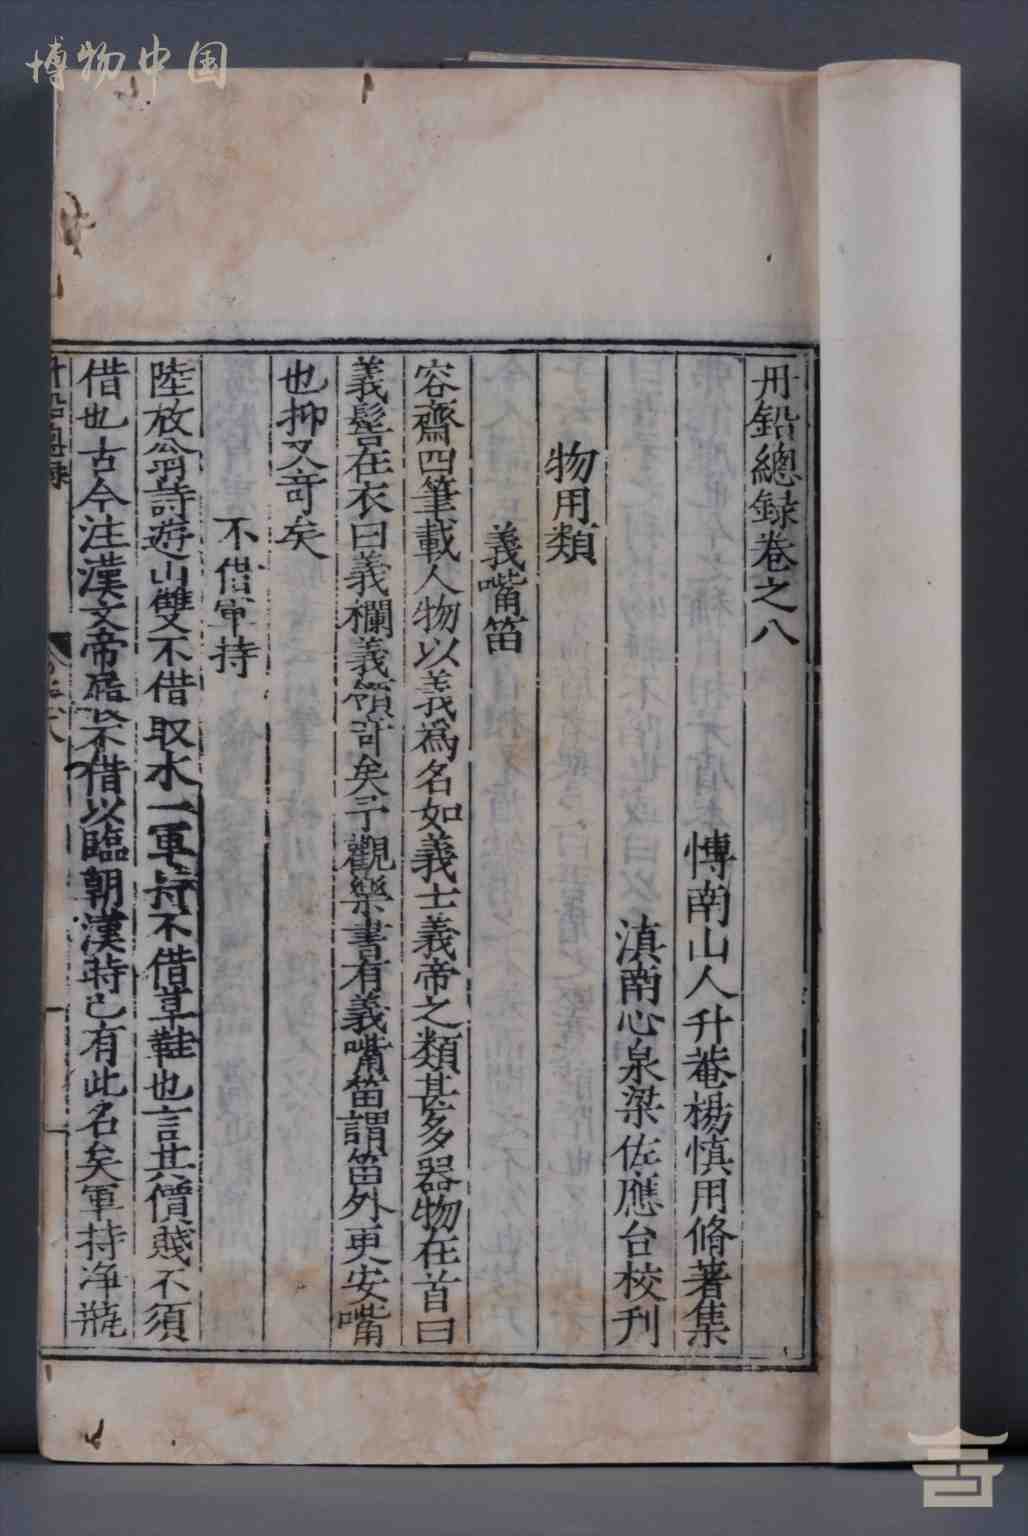 博物中国
丹鉛總録卷之八
博南山人升菴楊慎用脩著集
滇南心泉梁佐應台校刋
物用類
義嘴笛
容齋四筆載人物以義爲名如義士義帝之類甚多器物在首曰
義髻在衣曰義欄義領許矣予觀樂書有義嘴笛謂笛外更安嘴
也抑又奇矣
不借軍持
陸放翁詩遊山雙不借取水一軍持不借草鞋也言其價賤不須
借也古今注漢文帝履不借以臨朝漢時已有此名矣軍持净瓶
丹鉛總録 卷之八